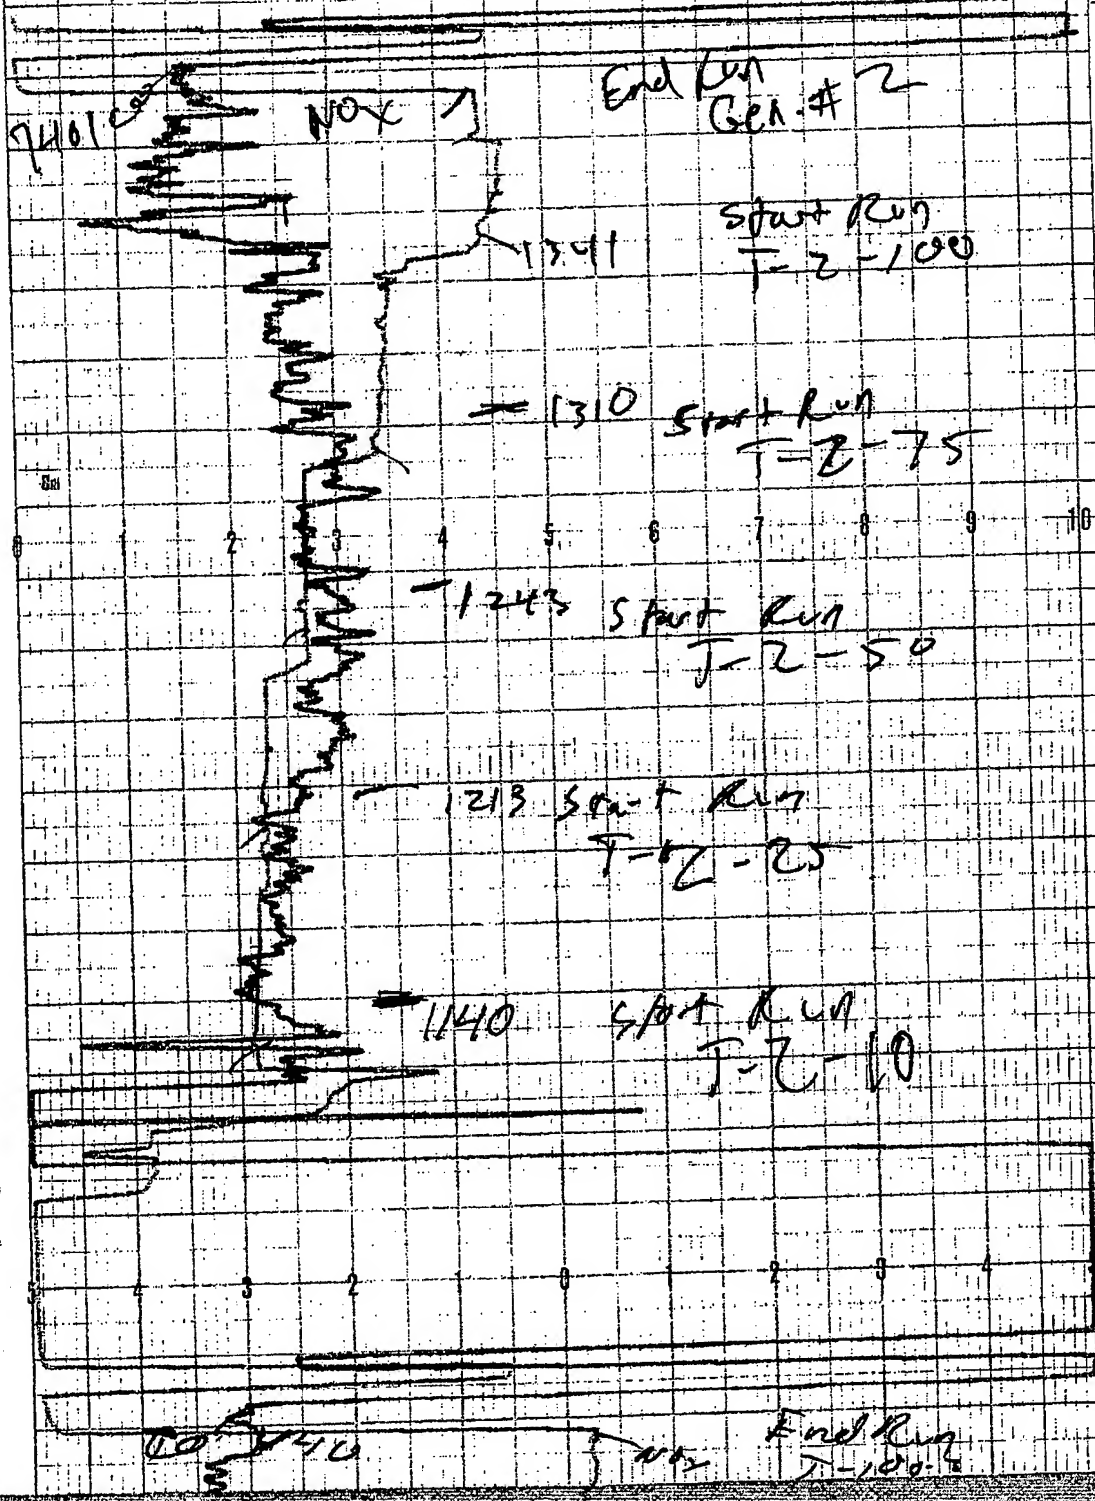 End Run
Gen. # 2
NOX
Start Run
T-2-100
1341
1310 Start Run
T-2-75
0 1 2 3 4 5 6 7 8 9 10
1243 Start Run
T-2-50
1213 Start Run
T-2-25
1140 Start Run
T-2-10
5 4 3 2 0 2 3 4
NOX
End Run